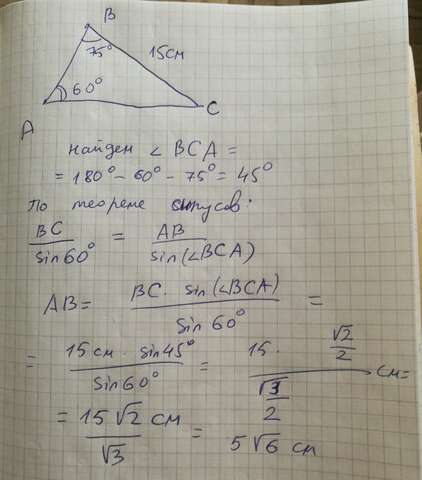 B
75°
15см
60°
A
C
найдем ∠ BCA =
= 180° - 60° - 75° = 45°
По теореме синусов:
BC / sin60° = AB / sin(∠BCA)
AB = BC · sin(∠BCA) / sin 60° =
= 15 см · sin45° / sin60° = 15 · √2/2 / √3/2 см =
= 15 √2 см / √3 = 5√6 см